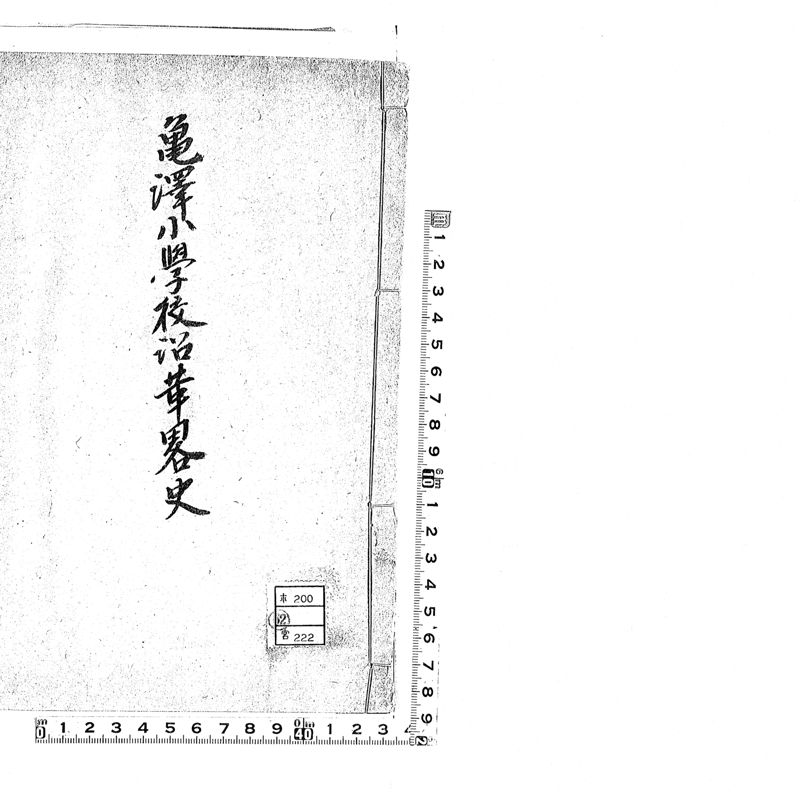 亀澤小學校沿革畧史
本 200
宮 222
1 2 3 4 5 6 7 8 9 10 1 2 3 4 5 6 7 8 9
0 1 2 3 4 5 6 7 8 9 10 1 2 3 4